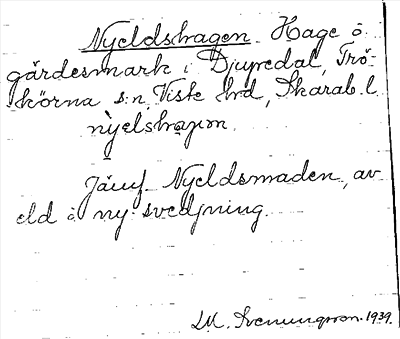 Nyeldshagen. Hage o
gärdesmark i Djupedal, Trö-
körna s:n, Viste hrd, Skarab. l.
nyelshagan.
Jämf. Nyeldsmaden, av
eld o. ny svedjning.
M. Svenungsson. 1939.